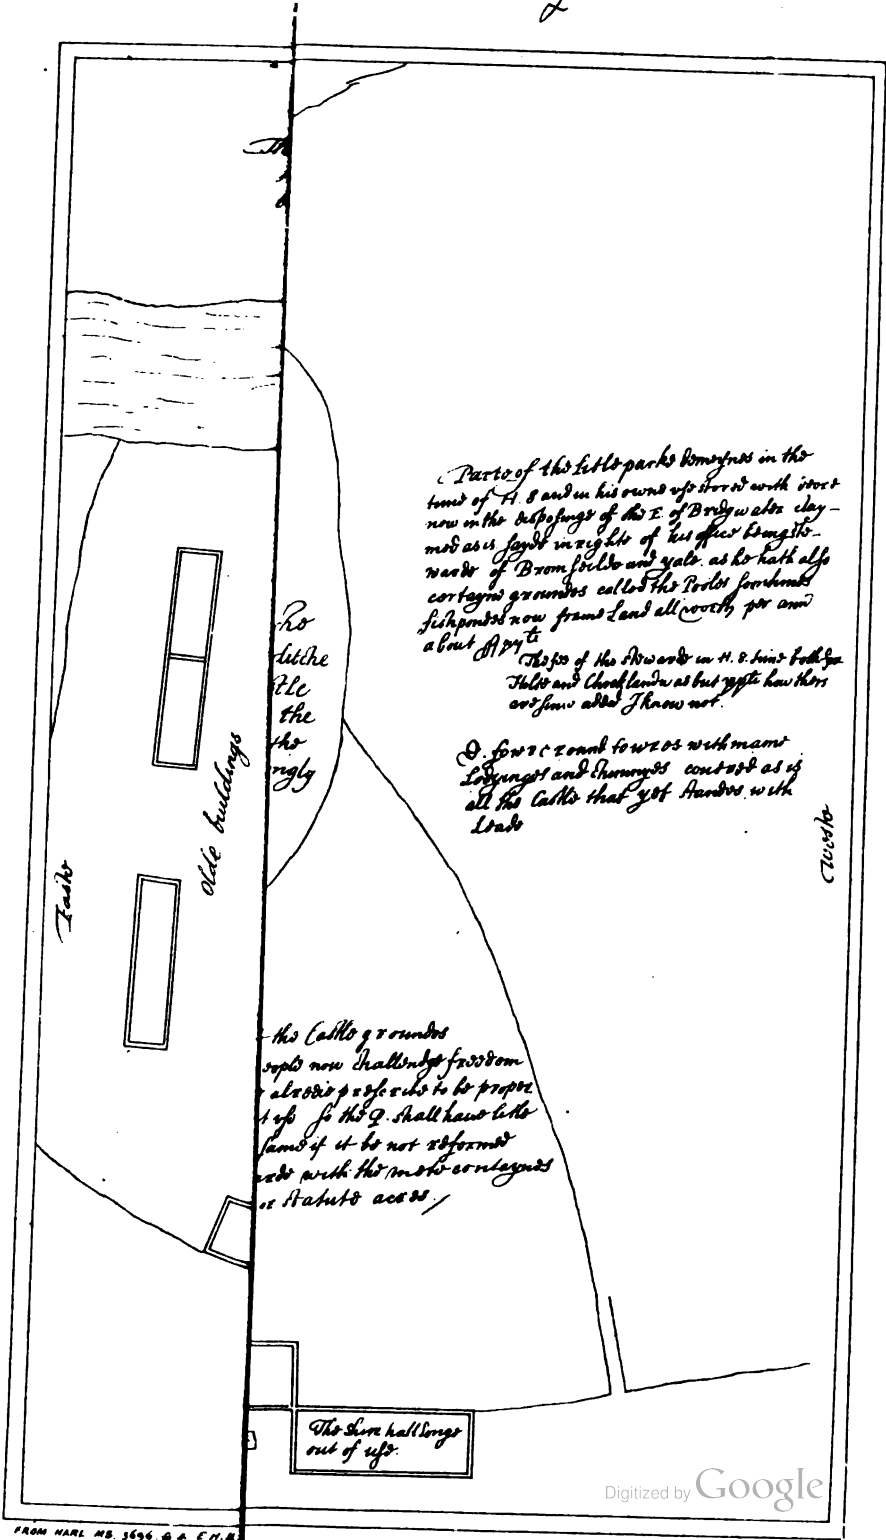 Th
Parte of the litle parke demeynes in the
time of H. 8 and in his owne use stored with
now in the disposinge of the E. of Bridgwater clay-
med as is sayde in righte of his office beinge ste-
warde of Bromfeilde and yale. as he hath also
certayne groundes called the Pooles somtimes
fishpondes now frame Land all worth per ann
about
The fee of the stewarde in H. 8. time both for
Holte and Chirklande was but how thers
are since added I know not.
D. fowre round towres with manie
Lodginges and chimnyes covered as is
all the Castle that yet standes with
Leade
he
ditche
tle
the
the
ngly
Olde buildings
Easte
Weste
the Castle groundes
eople now challendge freedom
alredie prescribe to be proper
t use so the Q. shall have litle
same if it be not reformed
arde with the mote contaynes
or statute acres
The shire hall longe
out of use.
FROM HARL MS. 3696.
Digitized by Google